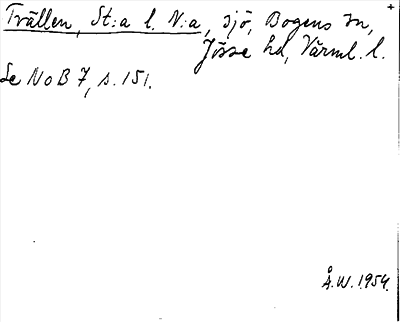 Trällen, St:a l. N:a, sjö, Bogens sn,
Jösse hd, Värml. l.
Se NoB 7, s. 151.
Å.W. 1954.